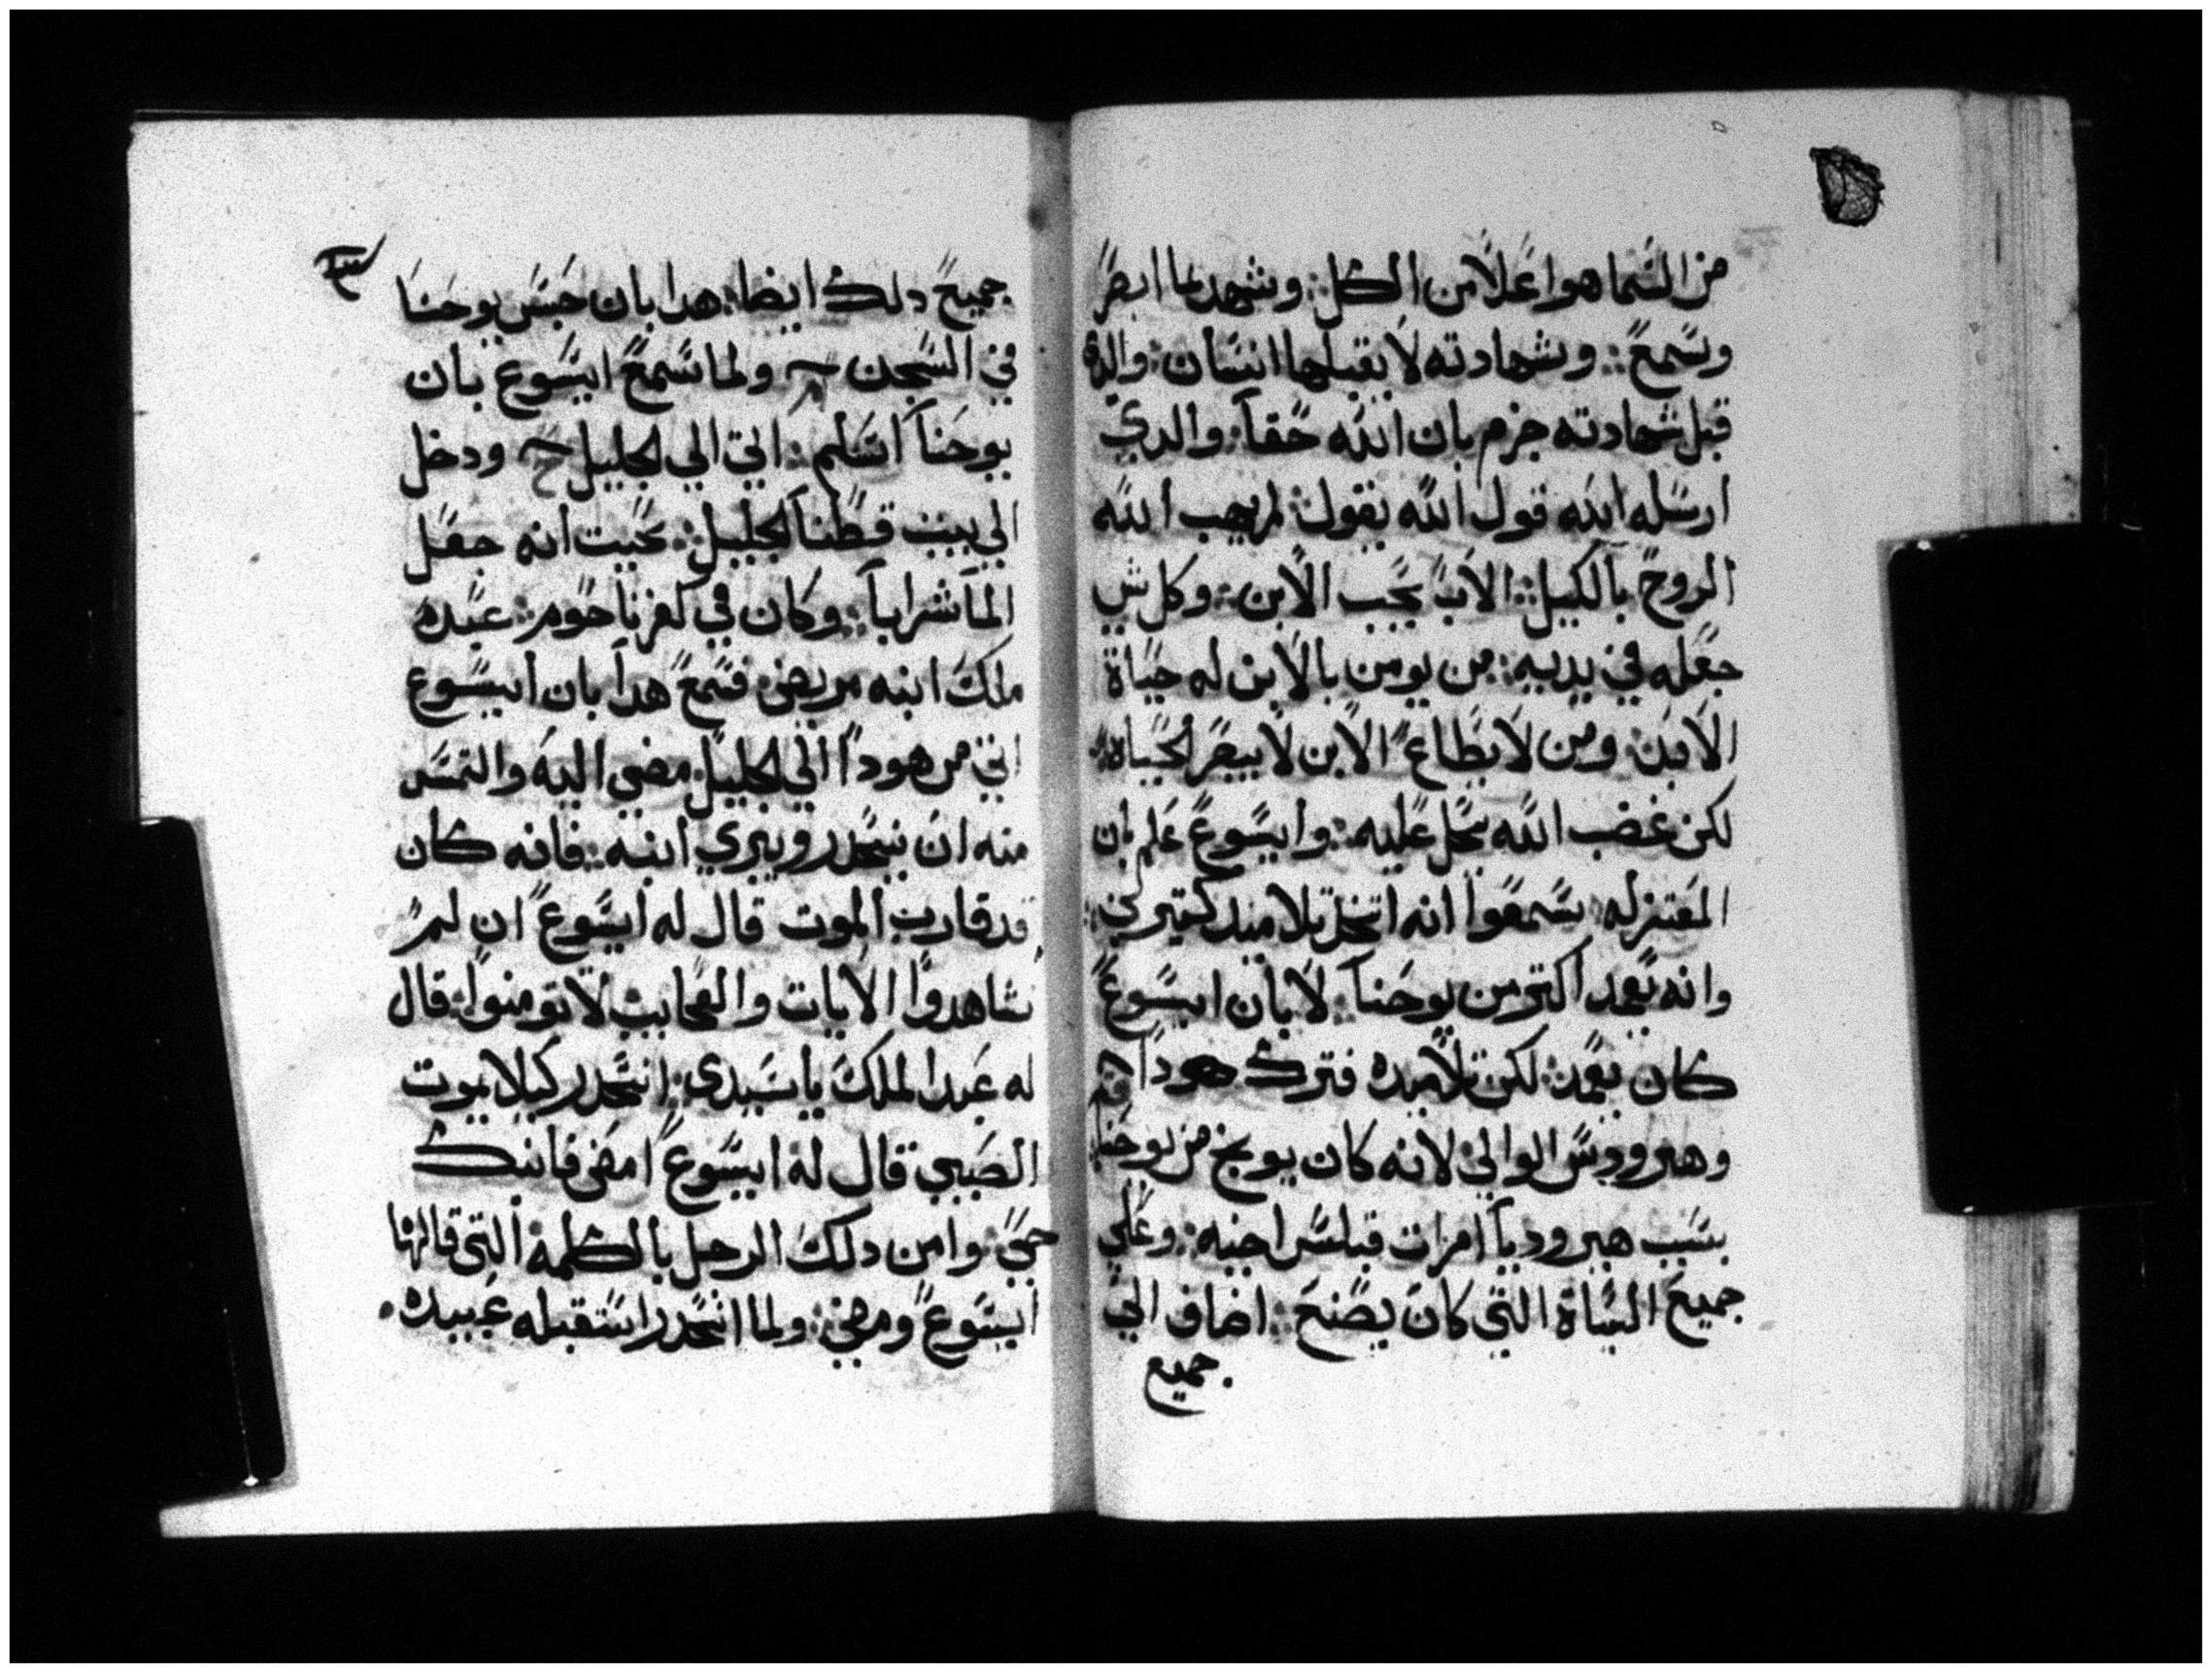 من السما هوا علا من الكل : وشهد لما ابصر
وسمع : وشهادته لا يقبلها انسان : والدي
قبل شهادته جزم بان الله حقا : والدي
ارسله الله قول الله يقول : لم يهب الله
الروح بالكيل : الاب يحب الابن : وكل شي
جعله في يديه : من يومن بالابن له حياة
الابد : ومن لا يطاع الابن لا يبصر الحياه :
لكن غضب الله يحل عليه : وايسوع علم بان
المعتزله سمعوا انه اتخد تلاميد كتيرين :
وانه يعمد اكتر من يوحنا : لا بان ايسوع
كان يعمد : لكن تلاميده فترك هودا
وهيرودس الوالي لانه كان يوبخ من يوحنا
بسبب هيروديا امرات فيلبس اخيه : وعلي
جميع السياة التي كان يصنع : اضاف الي
جميع
جميع دلك ايضا : هدا بان حبس يوحنا
في السجن ولما سمع ايسوع بان
يوحنا اسلم : اتي الي الجليل ودخل
الي بيت قطنا الجليل : بحيت انه جعل
الما شرابا : وكان في كفرناحوم : عبده
ملك ابنه مريض : فسمع هدا بان ايسوع
اتي من هودا الي الجليل : مضي اليه والتمس
منه ان ينحدر ويبري ابنه : فانه كان
قد قارب الموت قال له ايسوع ان لم
تشاهدوا الايات والعجايب لا تومنوا : قال
له عبد الملك يا سيدي : انحدر كيلا يموت
الصبي قال له ايسوع امضي فابنك
حي : وامن دلك الرجل بالكلمه التي قالها
ايسوع ومضي : ولما انحدر استقبله عبيده